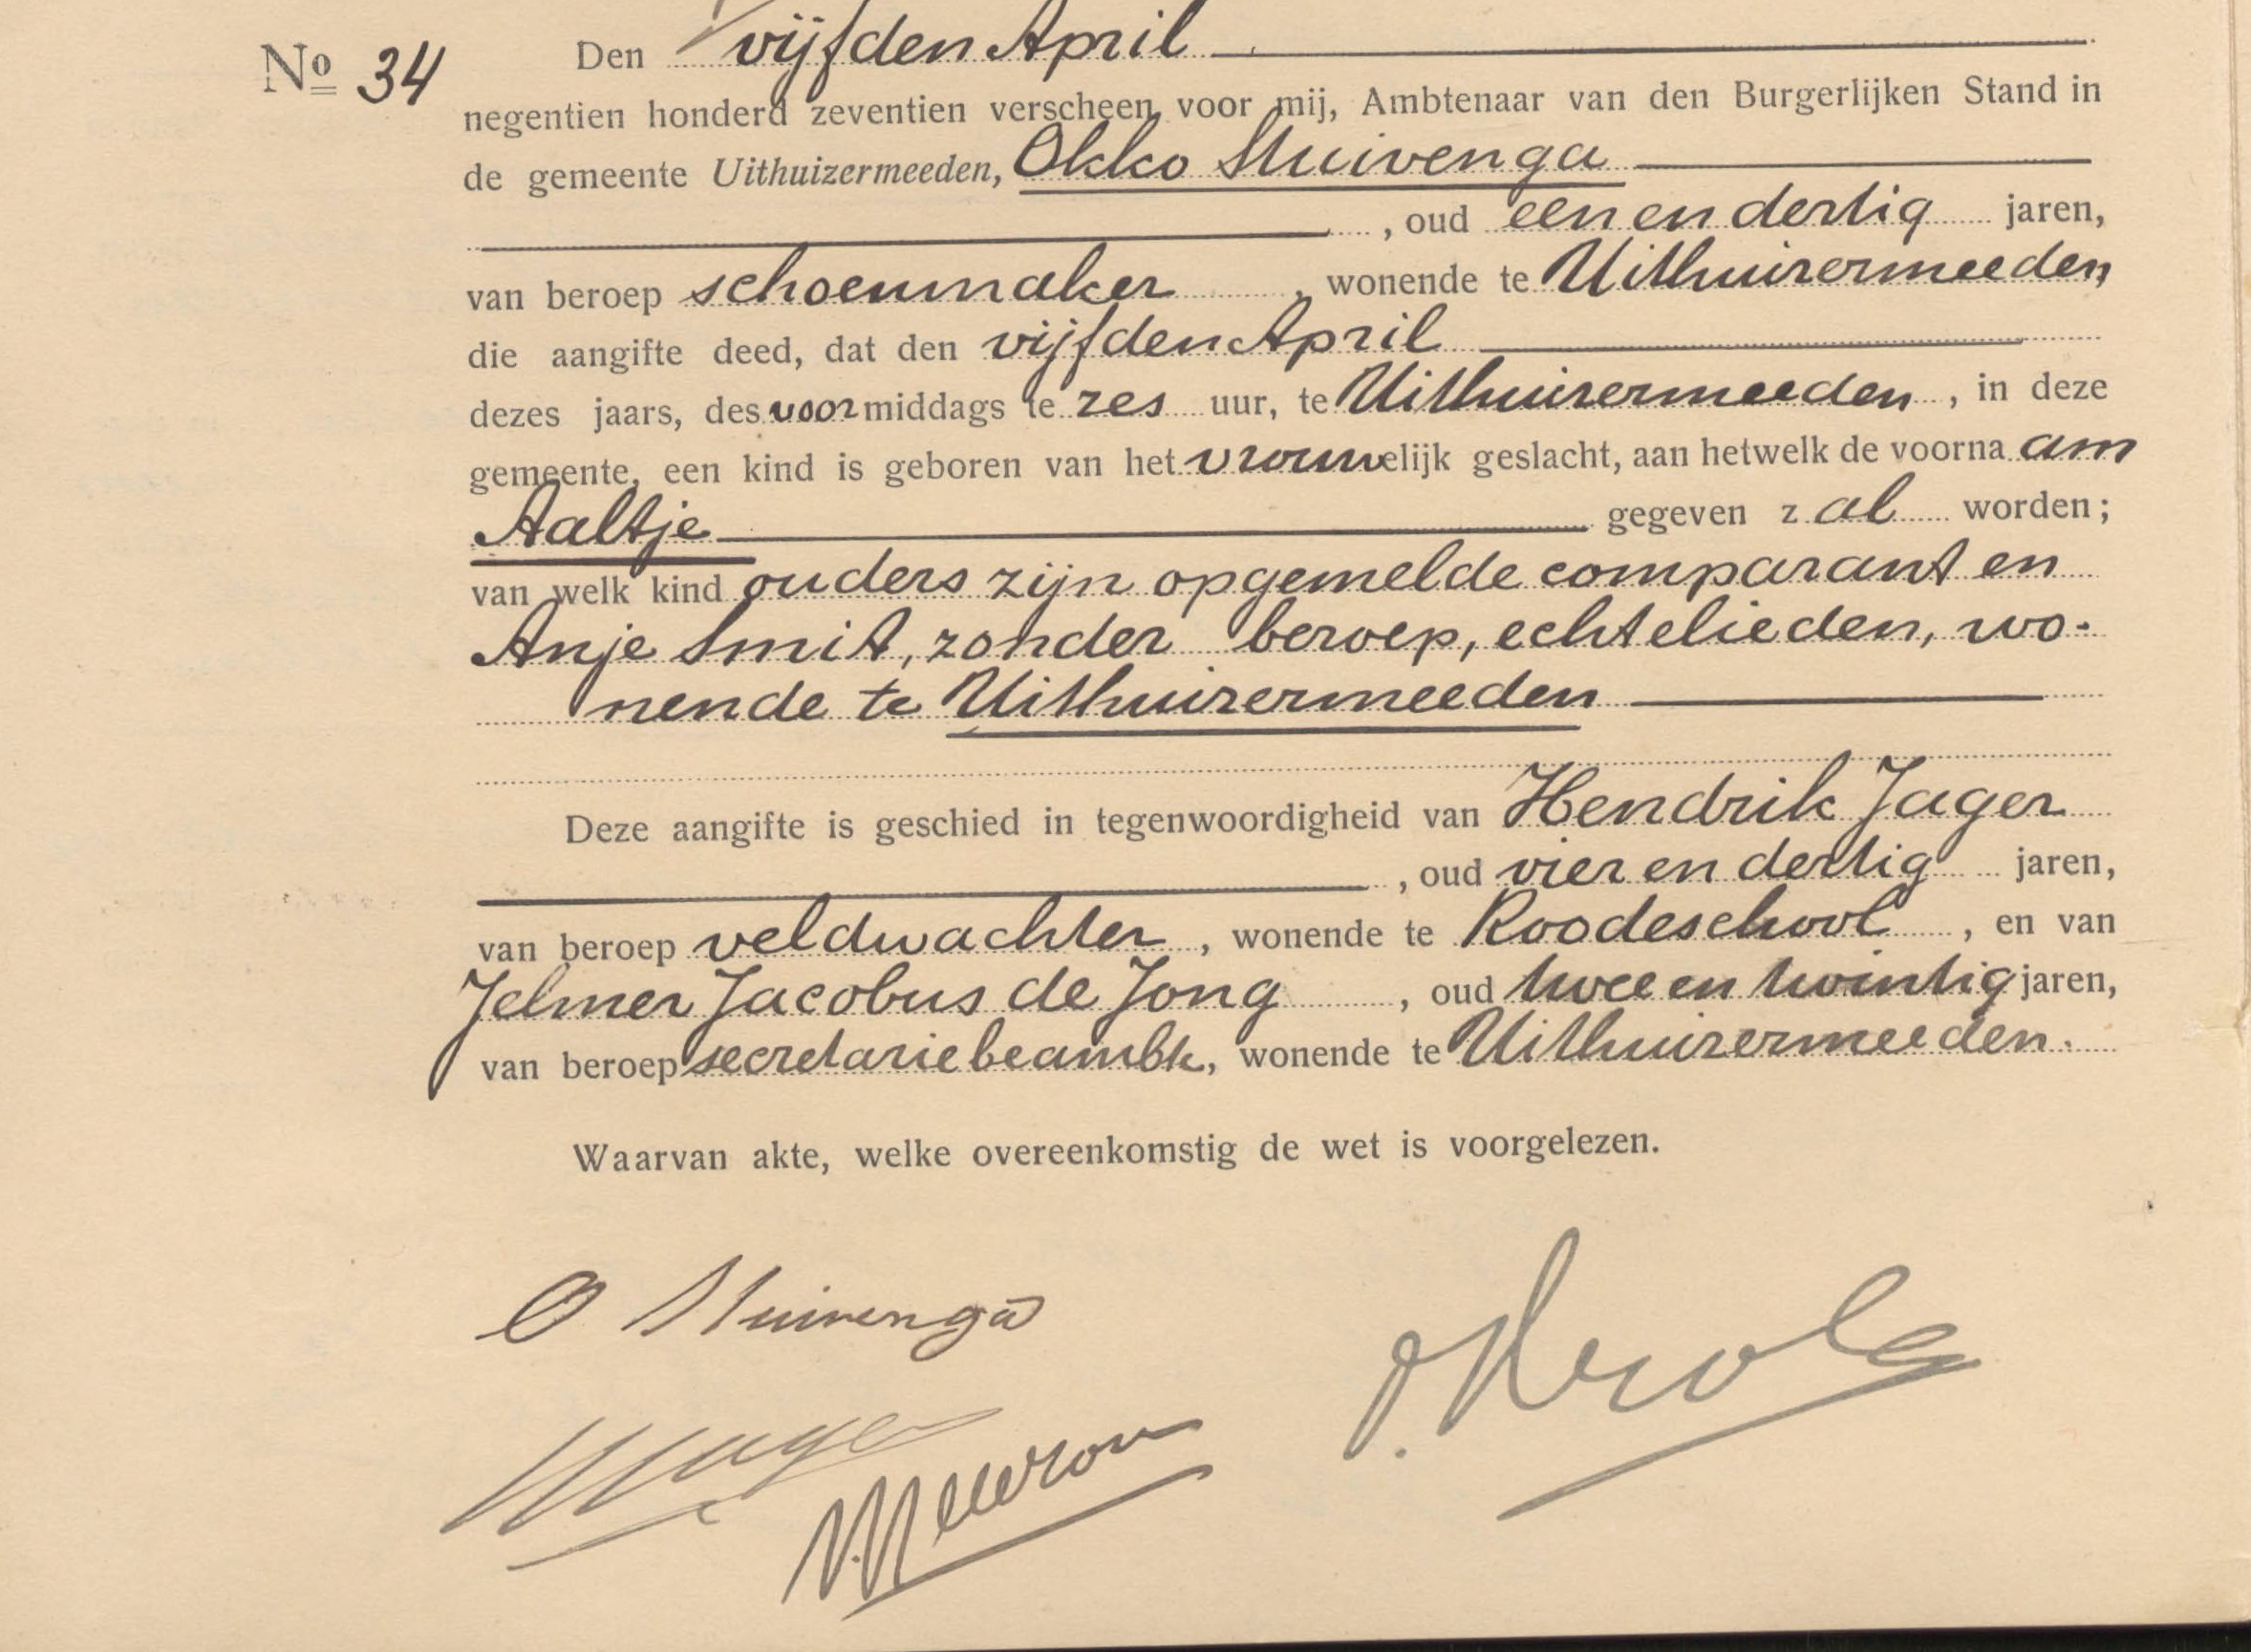 No 34
Den vijfden April
negentien honderd zeventien verscheen voor mij, Ambtenaar van den Burgerlijken Stand in
de gemeente Uithuizermeeden, Okko Stuivenga
, oud een en dertig jaren,
van beroep schoenmaker, wonende te Uithuizermeeden,
die aangifte deed, dat den vijfden April
dezes jaars, des voormiddags te zes uur, te Uithuizermeeden, in deze
gemeente, een kind is geboren van het vrouwelijk geslacht, aan hetwelk de voornaam
Aaltje gegeven zal worden;
van welk kind ouders zijn opgemelde comparant en
Anje Smit, zonder beroep, echtelieden, wo-
nende te Uithuizermeeden
Deze aangifte is geschied in tegenwoordigheid van Hendrik Jager
, oud vier en dertig jaren,
van beroep veldwachter, wonende te Roodeschool, en van
Jelmer Jacobus de Jong, oud twee en twintig jaren,
van beroep secretariebeambte, wonende te Uithuizermeeden.
Waarvan akte, welke overeenkomstig de wet is voorgelezen.
O Stuivenga